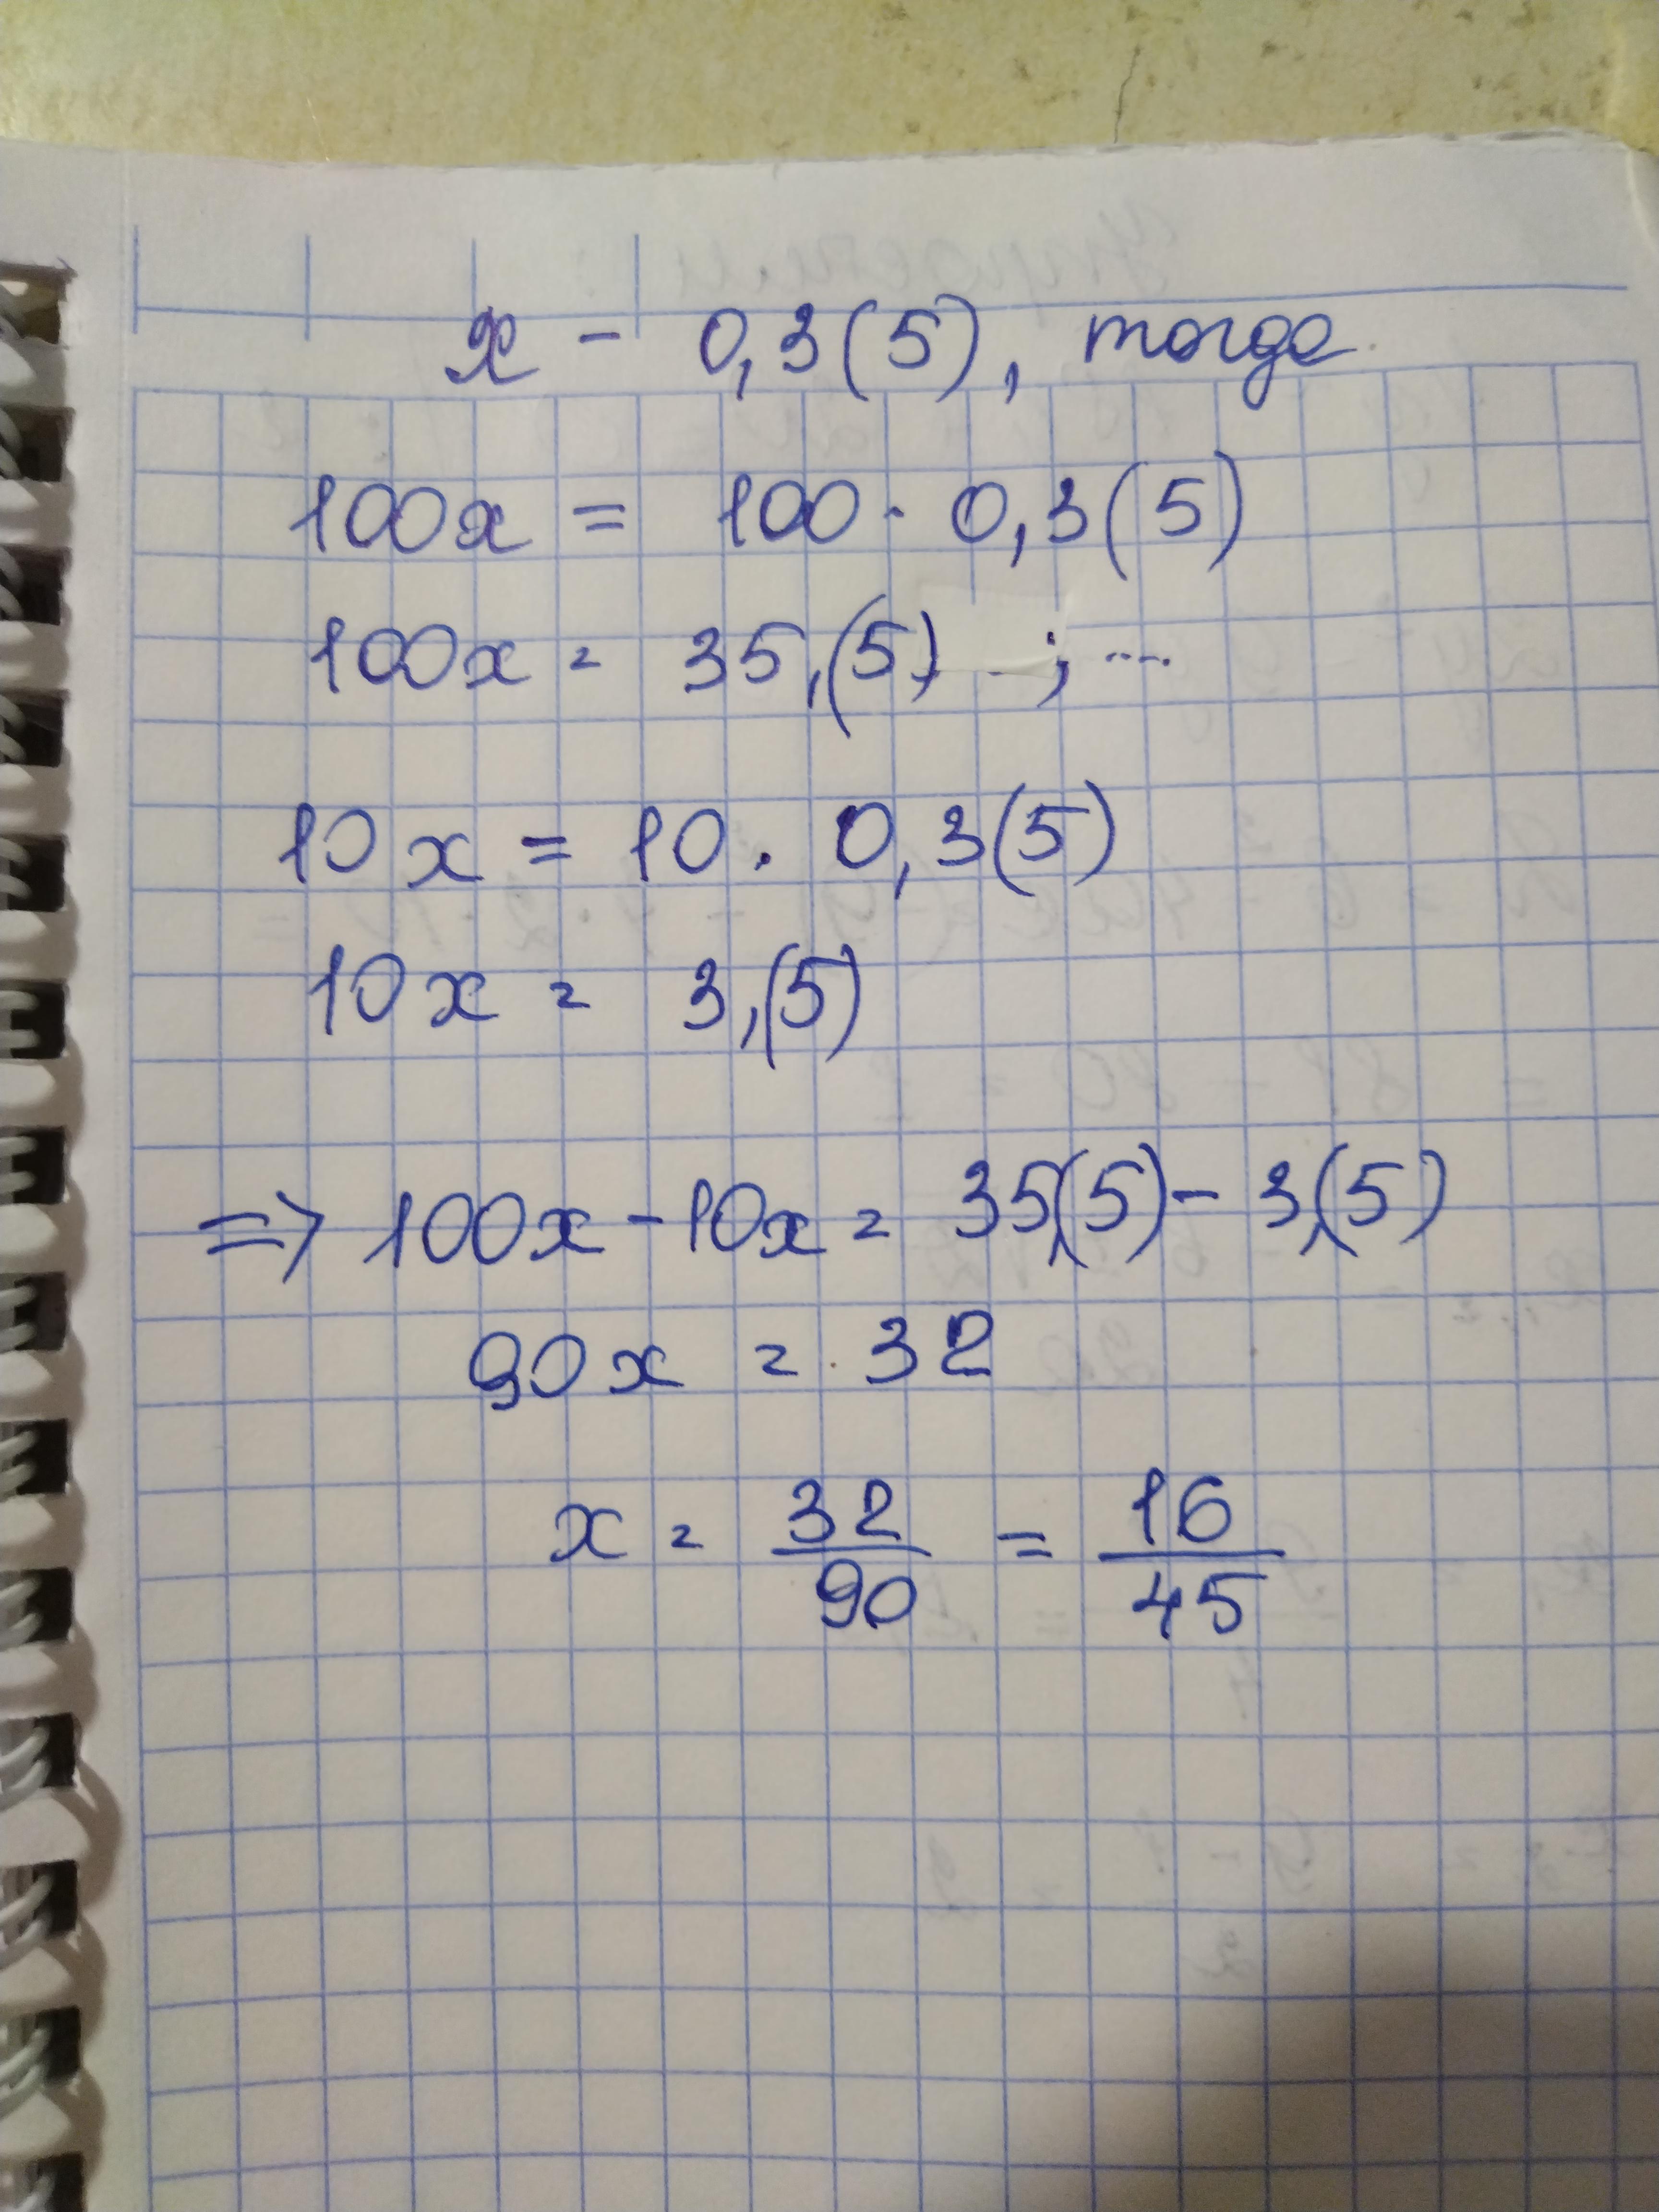 x - 0,3(5), тогда
100x = 100 · 0,3(5)
100x = 35,(5) ; ...
10x = 10 · 0,3(5)
10x = 3,(5)
=> 100x - 10x = 35,(5) - 3,(5)
90x = 32
x = 32/90 = 16/45